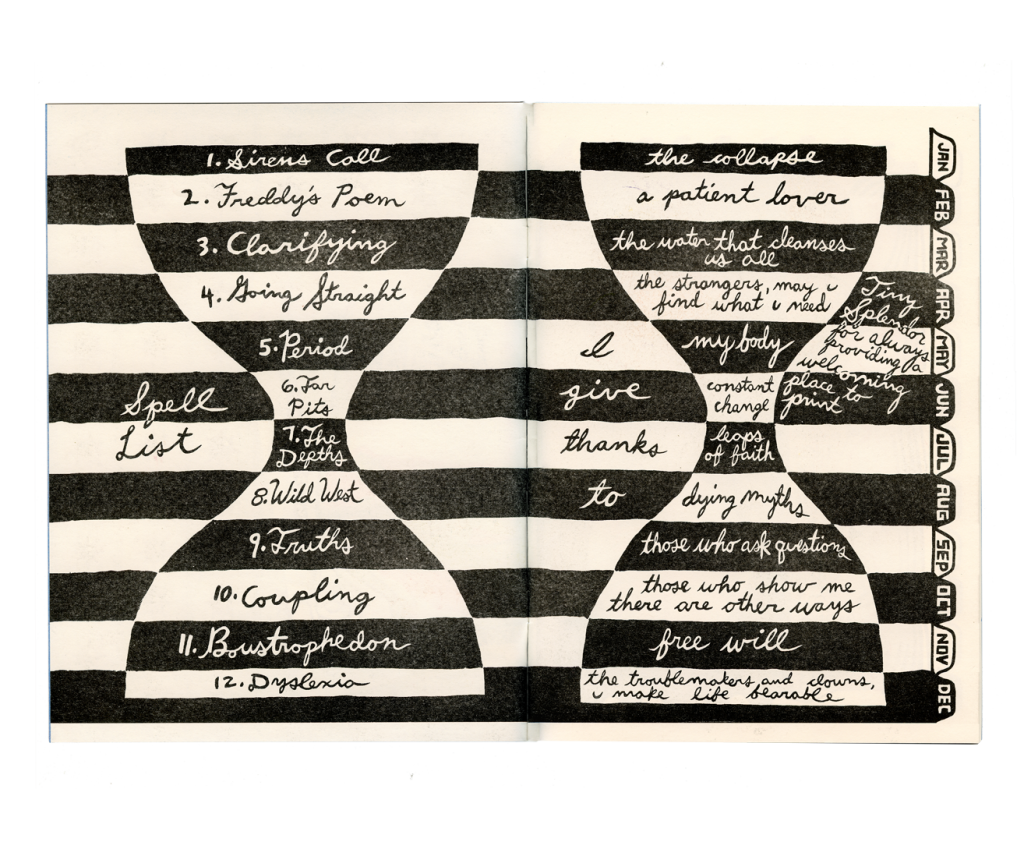 Spell
List
1. Sirens Call
2. Freddy's Poem
3. Clarifying
4. Going Straight
5. Period
6. Tar
Pits
7. The
Depths
8. Wild West
9. Truths
10. Coupling
11. Boustrophedon
12. Dyslexia
I
give
thanks
to
the collapse
a patient lover
the water that cleanses
us all
the strangers, may u
find what u need
my body
constant
change
leaps
of faith
dying myths
those who ask questions
those who show me
there are other ways
free will
the troublemakers and clowns,
u make life bearable
Tiny
Splendor
for always
providing a
welcoming
place to
print
JAN
FEB
MAR
APR
MAY
JUN
JUL
AUG
SEP
OCT
NOV
DEC